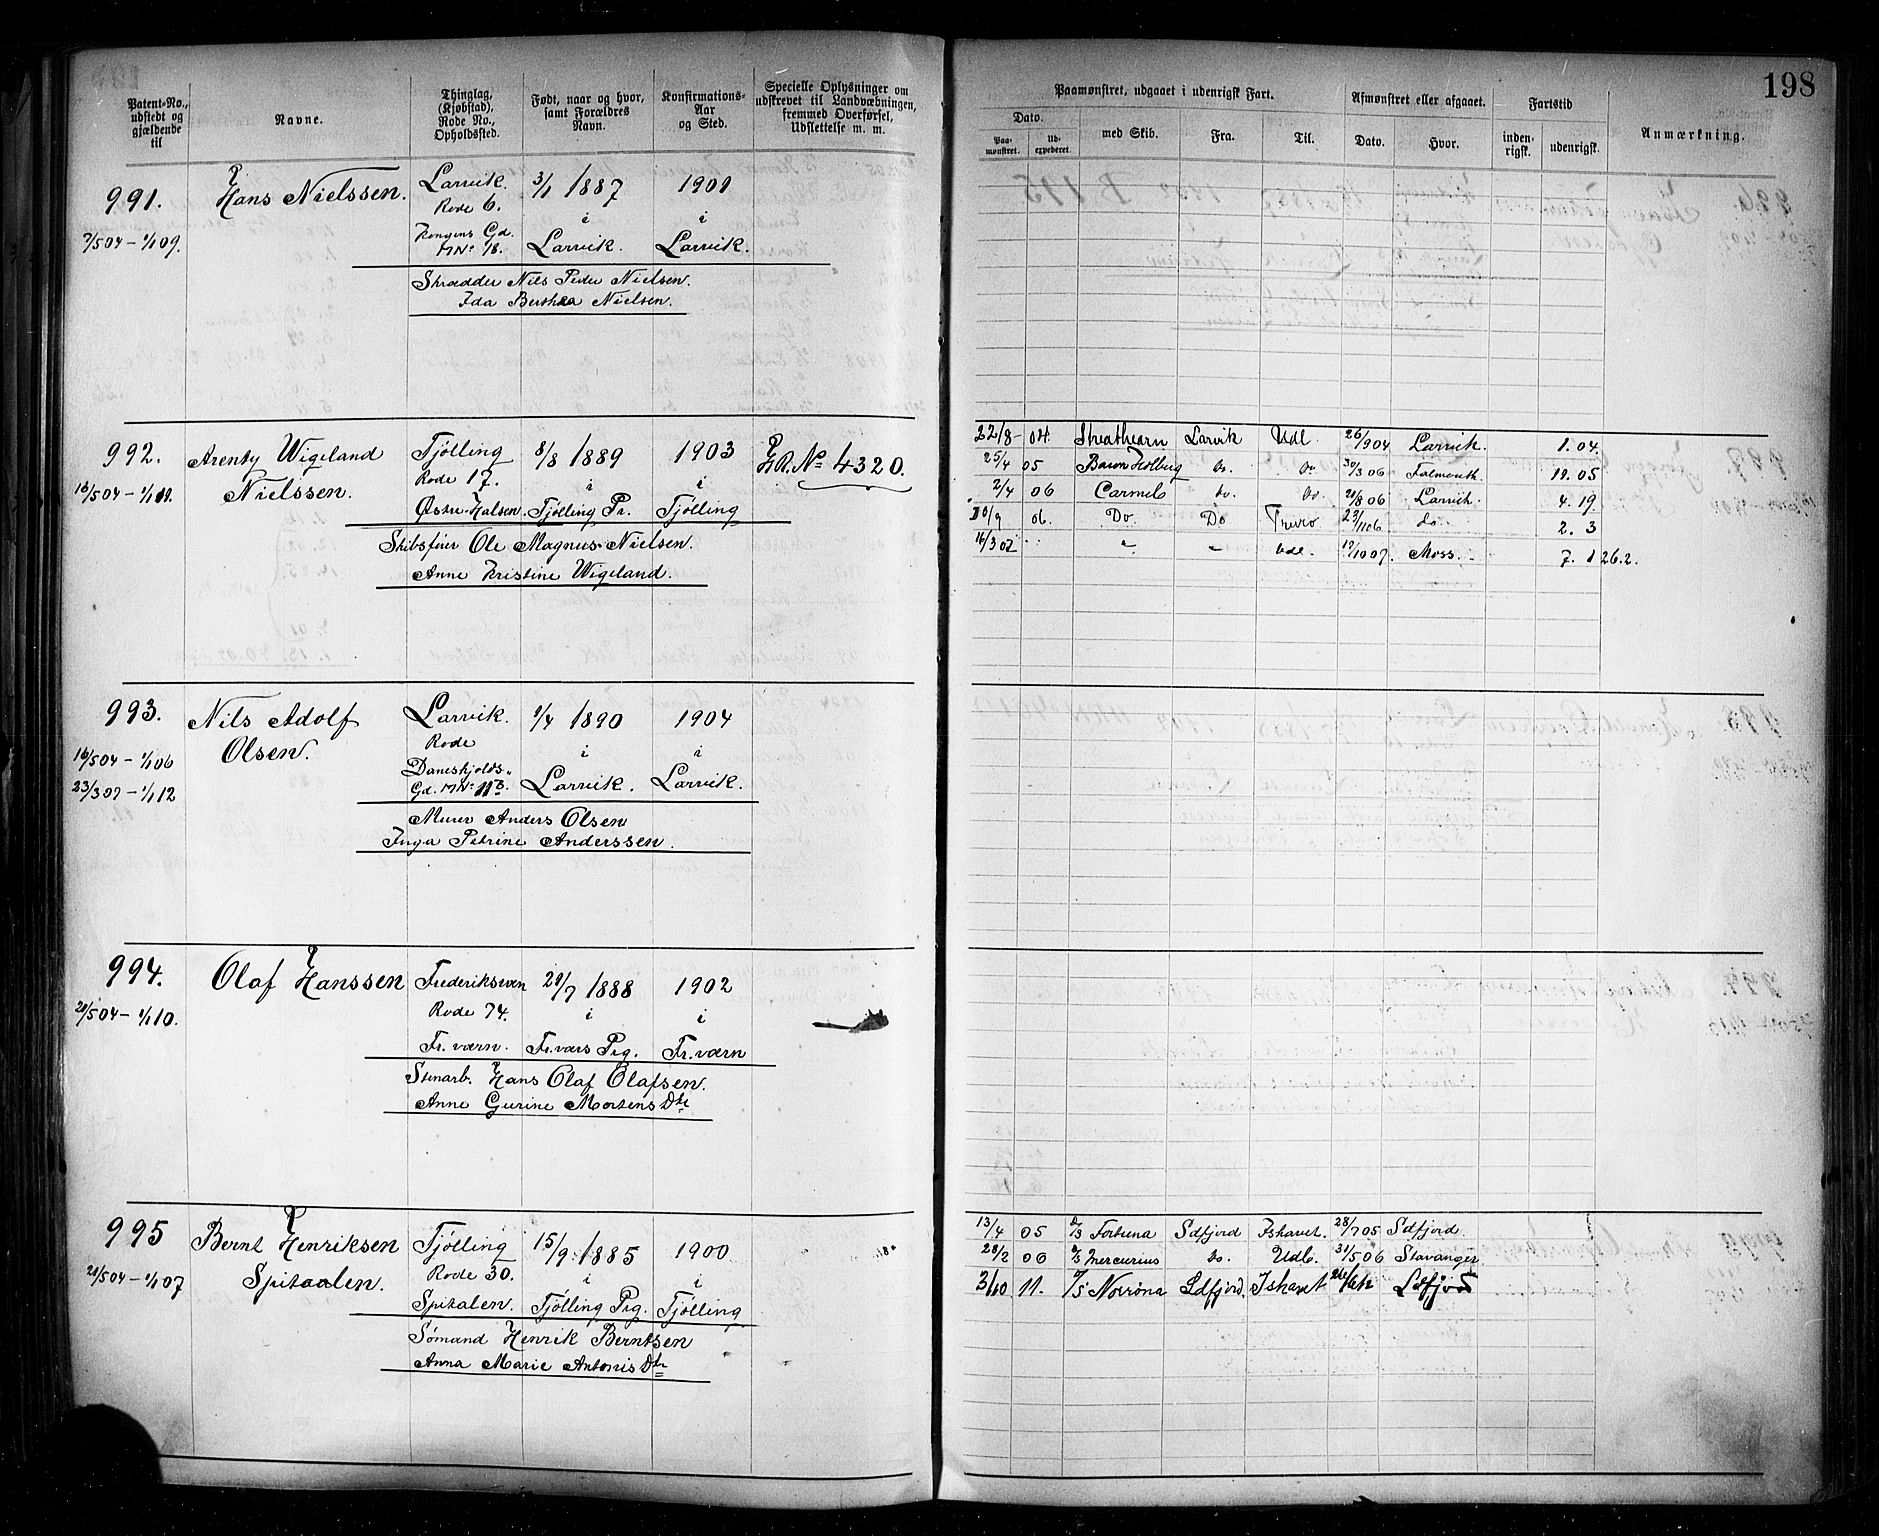 198
Patent-No., udstedt og gjældende til
Navne.
Thinglag, (Kjøbstad), Rode No., Opholdssted.
Født, naar og hvor, samt Forældres Navn.
Konfirmations-Aar og Sted.
Specielle Oplysninger om udskrevet til Landværbningen, fremmed Overførsel, Udslettelse m. m.
Paamønstret, udgaaet i udenrigsk Fart.
Dato.
Paa-mønstret.
Ud-expederet.
med Skib.
Fra.
Til.
Afmønstret eller afgaaet.
Dato.
Hvor.
Fartstid
inden-rigsk.
udenrigsk.
Anmærkning.
991. Hans Nielssen. Larvik. 3/1 1887 1901
Rode 6. i i
7/504 – 1/109. Kongens Gd. MNo 18. Larvik. Larvik.
Skrædder Nils Peder Nielsen.
Ida Berthea Nielsen.
992. Arenty Wigeland Tjølling 8/8 1889 1903 ER. No 4320.
Nielssen. Rode 17. i i
Østre Halsen. Tjølling Pr. Tjølling
Skibsfører Ole Magnus Nielsen.
Anne Kristine Wigeland.
22/8 – 04. Strathearn Larvik Udl. 26/904 Larvik. 1.04.
25/4 05 Baron Holberg do. do 30/3 06 Falmouth 10.05
2/4 06 Carmel do. do. 21/8 06 Larvik. 4.19
10/9 06. Do Do Truro 23/1106 do. 2. 3
16/307 " " Udl. 17/1007. Moss. 7. 1 26.2.
993. Nils Adolf Larvik. 1/4 1890 1904
Olsen. Rode i i
16/504 – 1/106 Daneskjolds
23/307 – 1/112 Gd. MNo 11B. Larvik. Larvik.
Murer Anders Olsen
Inga Petrine Anderssen.
994. Olaf Hanssen Frederiksværn 21/7 1888 1902
21/504 – 1/110. Rode 74. i i
Fr.værn. Fr.værs Prg. Fr.værn
Stenarb. Hans Olaf Olafsen.
Anne Gurine Mortens Dtr
995 Bernt Henriksen Tjølling 15/9 1885 1900
21/504 – 1/107 Spitaalen. Rode 30. i i
Spitalen. Tjølling Prg. Tjølling
Sømand Henrik Berntsen
Anna Marie Antonis Dtr
13/4 05 D/S Fortuna Sdfjord Ishavet. 28/705 Sdfjord.
28/2 06 D/S Mercurius do. Udl. 31/506 Stavanger
3/10 11. D/S Norrøna Sdfjord. Ishavet Sdfjord